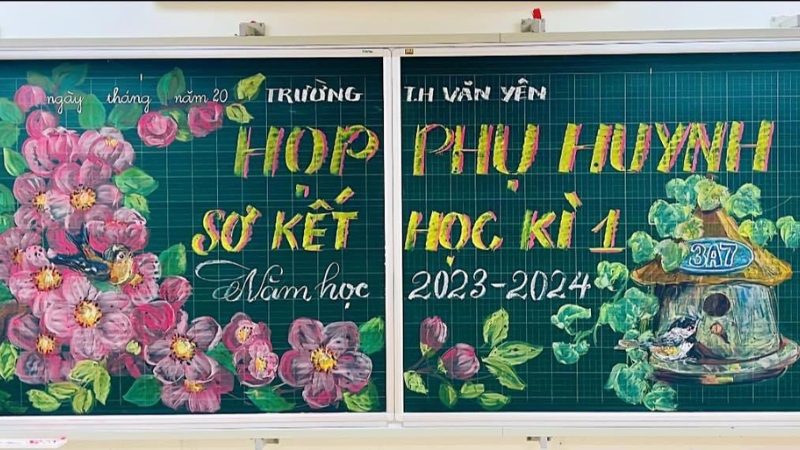 ngày tháng năm 20 TRƯỜNG T.H VĂN YÊN
HỌP PHỤ HUYNH
SƠ KẾT HỌC KÌ 1
Năm học 2023-2024
3A7